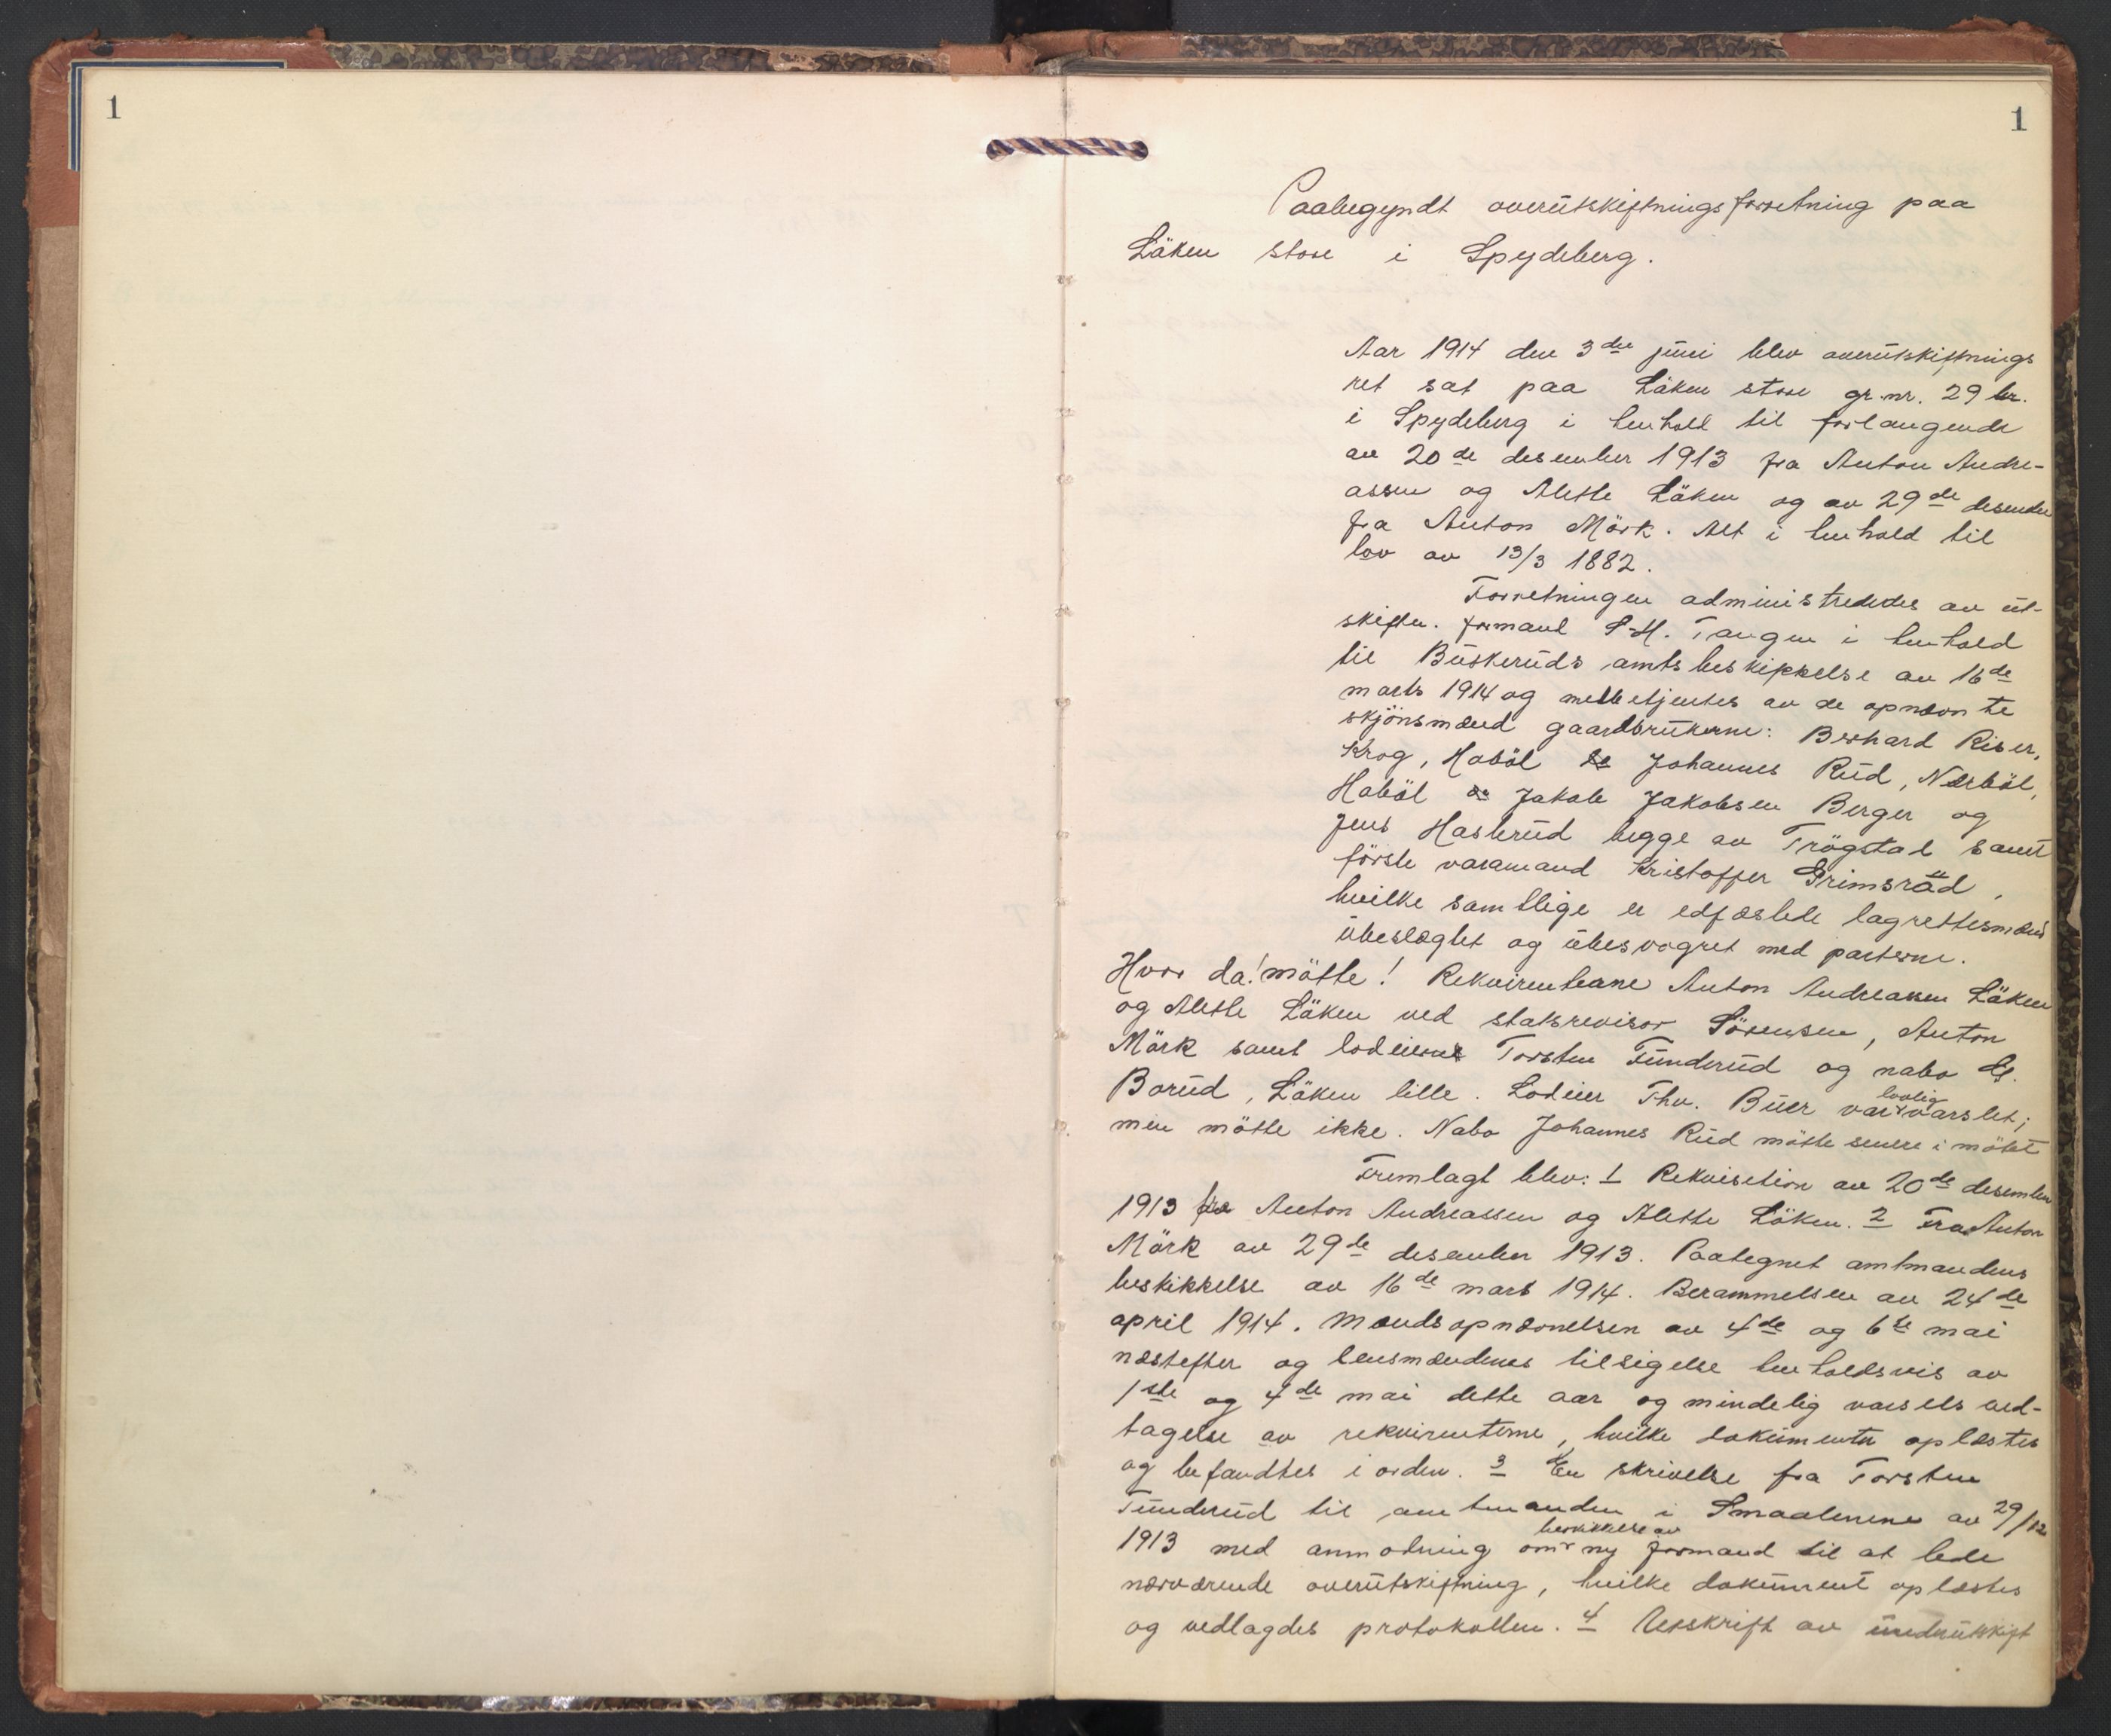 1
1
Paabegyndt overutskiftningsforretning paa
Löken store i Spydeberg.
Aar 1914 den 3die juni blev overutskiftnings
ret sat paa Löken store gr.nr. 29 br.
i Spydeberg i henhold til forlangende
av 20de desember 1913 fra Anton Andre-
assen og Alette Löken og av 29de desember
fra Anton Mörk. Alt i henhold til
lov av 13/3 1882.
Forretningen administredes av ut-
skiftn. formand S. H. Tangen i henhold
til Buskeruds amts beskikkelse av 16de
marts 1914 og medbetjentes av de opnævnte
skjönsmænd gaardbrukerne: Berhard Riser,
Krog, Haböl Johannes Rud, Nærböl,
Haböl Jakob Jakobsen Berger og
Jens Hasterud begge av Trögstad samt
förste varamand Kristoffer Grimsrud,
hvilke samtlige er edfæstede lagrettesmænd
ubeslægtet og ubesvogret med parterne.
Hvor da! mötte! Rekvirenterne Anton Andreassen Löken
og Alette Löken ved statsrevisor Sörensen, Anton
Mörk samt lodeierne Torsten Tunderud og nabo
Borud, Löken lille. Lodeier Thv. Buer var lovlig varslet;
men mötte ikke. Nabo Johannes Rud mötte senere i mötet
Fremlagt blev: 1 Rekvisition av 20de desember
1913 fra Anton Andreassen og Alette Löken. 2 Fra Anton
Mörk av 29de desember 1913. Paategnet amtmandens
beskikkelse av 16de mars 1914. Berammelsen av 24de
april 1914. Mændsopnævnelsen av 4de og 6te mai
næstefter og lensmændenes tilsigelse henholdsvis av
1ste og 4de mai dette aar og mindelig varsels ved-
tagelse av rekvirenterne, hvilke dokumenter oplæstes
og befandtes i orden. 3 En skrivelse fra Torsten
Tunderud til amtmanden i Smaalenene av 29/12
1913 med anmodning om beskikkelse av ny formand til at lede
nærværende overutskiftning, hvilke dokument oplæstes
og vedlagdes protokollen. 4 Utskrift av underutskift